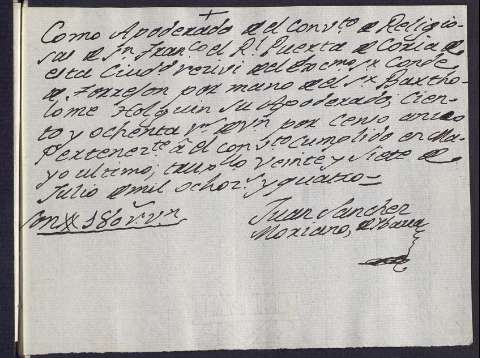 +
Como Apoderado del convto de Religio-
sas de Sn Franco el Rl Puerta de Coria de
esta Ciudd recivi del Excmo sr Conde
de Torrejon por mano del sr Bartho-
lome Holguin su Apoderado, cien-
to y ochenta rs de vn por censo anuo
Pertenecte á el convto cumplido en Ma-
yo ultimo, Truxllo veinte y siete de
Julio de mil ochors y quatro=
Son 180 rs vn
Juan Sanchez
Moriano,